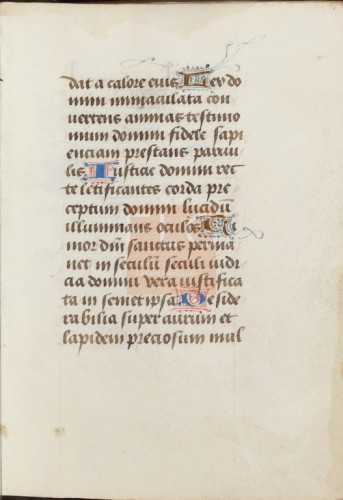 dat a calore eius Lex do
mini inmaculata con
uertens animas testimo
nium domini fidele sapi
enciam prestans paruu
lis Iusticie domini rec
te letificantes corda pre
ceptum domini lucidū
illuminans oculos Ti
mor dnī sanctus perma
net in seculū seculi iudi
cia domini vera iustifica
ta in semet ipsa De side
rabilia super aurum et
lapidem preciosum mul